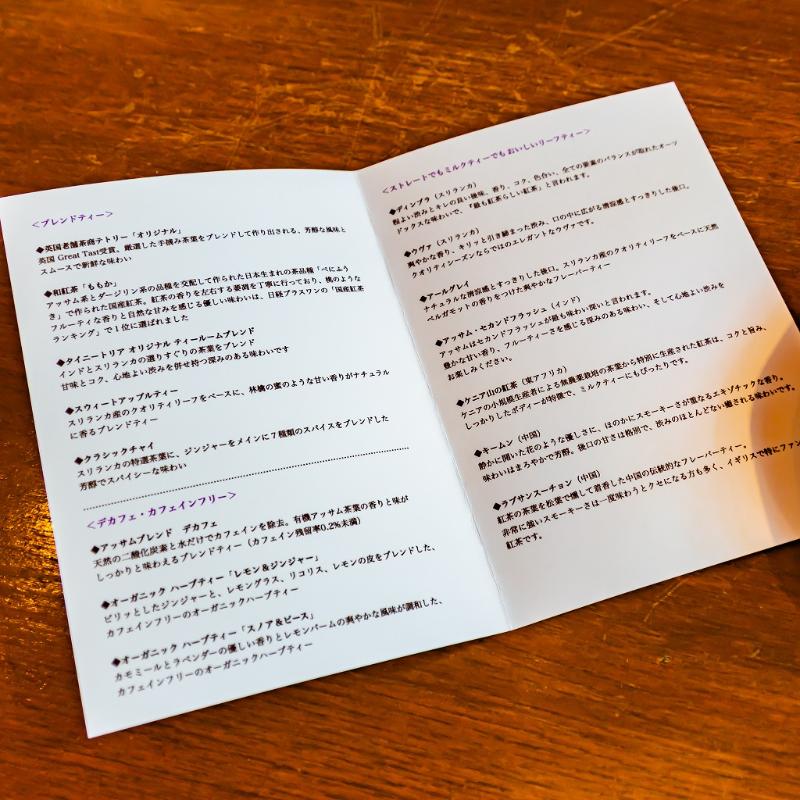 ＜ブレンドティー＞
◆英国老舗茶商テトリー「オリジナル」
英国 Great Tast受賞。厳選した手摘み茶葉をブレンドして作り出される、芳醇な風味と
スムースで新鮮な味わい
◆和紅茶「ももか」
アッサム系とダージリン系の品種を交配して作られた日本生まれの茶品種「べにふう
き」で作られた国産紅茶。紅茶の香りを左右する萎凋を丁寧に行っており、桃のような
フルーティな香りと自然な甘みを感じる優しい味わいは、日経プラスワンの「国産紅茶
ランキング」で1位に選ばれました
◆タイニートリア オリジナル ティールームブレンド
インドとスリランカの選りすぐりの茶葉をブレンド
甘味とコク、心地よい渋みを併せ持つ深みのある味わいです
◆スウィートアップルティー
スリランカ産のクオリティリーフをベースに、林檎の蜜のような甘い香りがナチュラル
に香るブレンドティー
◆クラシックチャイ
スリランカの特選茶葉に、ジンジャーをメインに7種類のスパイスをブレンドした
芳醇でスパイシーな味わい
＜デカフェ・カフェインフリー＞
◆アッサムブレンド デカフェ
天然の二酸化炭素と水だけでカフェインを除去。有機アッサム茶葉の香りと味が
しっかりと味わえるブレンドティー（カフェイン残留率0.2%未満）
◆オーガニック ハーブティー「レモン&ジンジャー」
ピリッとしたジンジャーと、レモングラス、リコリス、レモンの皮をブレンドした、
カフェインフリーのオーガニックハーブティー
◆オーガニック ハーブティー「スノア&ピース」
カモミールとラベンダーの優しい香りとレモンバームの爽やかな風味が調和した、
カフェインフリーのオーガニックハーブティー
＜ストレートでもミルクティーでもおいしいリーフティー＞
◆ディンブラ（スリランカ）
程よい渋みとキレの良い後味、香り、コク、色合い、全ての要素のバランスが取れたオーソ
ドックスな味わいで、『最も紅茶らしい紅茶』と言われます。
◆ウヴァ（スリランカ）
爽やかな香り、キリッと引き締まった渋み、口の中に広がる清涼感とすっきりした後口。
クオリティシーズンならではのエレガントなウヴァです。
◆アールグレイ
ナチュラルな清涼感とすっきりした後口。スリランカ産のクオリティリーフをベースに天然
ベルガモットの香りをつけた爽やかなフレーバーティー
◆アッサム・セカンドフラッシュ（インド）
アッサムはセカンドフラッシュが最も味わい深いと言われます。
豊かな甘い香り、フルーティーさを感じる深みのある味わい、そして心地よい渋みを
お楽しみください。
◆ケニア山の紅茶（東アフリカ）
ケニアの小規模生産者による無農薬栽培の茶葉から特別に生産された紅茶は、コクと旨み、
しっかりしたボディーが特徴で、ミルクティーにもぴったりです。
◆キームン（中国）
静かに開いた花のような優しさに、ほのかにスモーキーさが重なるエキゾチックな香り。
味わいはまろやかで芳醇。後口の甘さは格別で、渋みのほとんどない癒される味わいです。
◆ラプサンスーチョン（中国）
紅茶の茶葉を松葉で燻して着香した中国の伝統的なフレーバーティー。
非常に強いスモーキーさは一度味わうとクセになる方も多く、イギリスで特にファン
紅茶です。